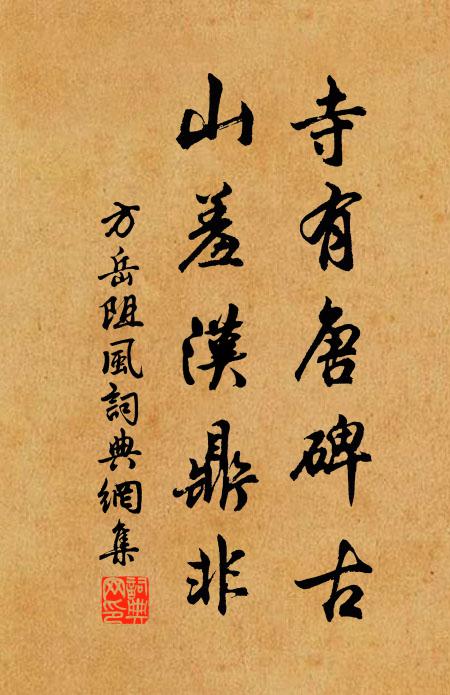 寺有唐碑古
山羞漢鼎非
方岳阻風詞典網集
詞典網印